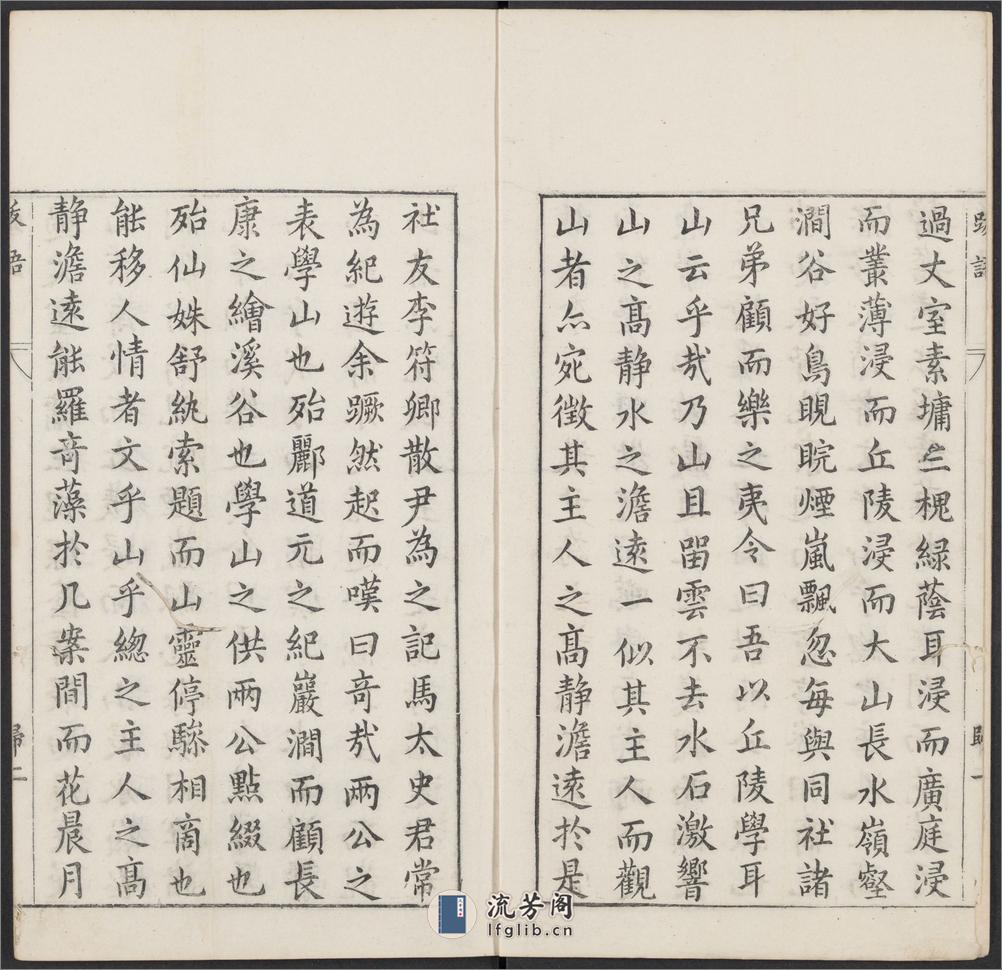 過丈室素墉三槐緑蔭耳浸而廣庭浸
而叢薄浸而丘陵浸而大山長水嶺壑
澗谷好鳥睍睆煙嵐飄忽每與同社諸
兄弟顧而樂之夷令曰吾以丘陵學耳
山云乎㢤乃山且畱雲不去水石激響
山之髙静水之澹逺一似其主人而觀
山者亦宛徵其主人之髙静澹逺於是
社友李符卿散尹為之記馬太史君常
為紀遊余蹶然起而嘆曰竒㢤兩公之
表學山也殆酈道元之紀巖澗而顧長
康之繪溪谷也學山之供兩公點綴也
殆仙姝舒紈索題而山靈停驂相啇也
能移人情者文乎山乎總之主人之髙
静澹逺能羅竒藻於几案間而花晨月
歸二
流芳阁
lfglib.cn